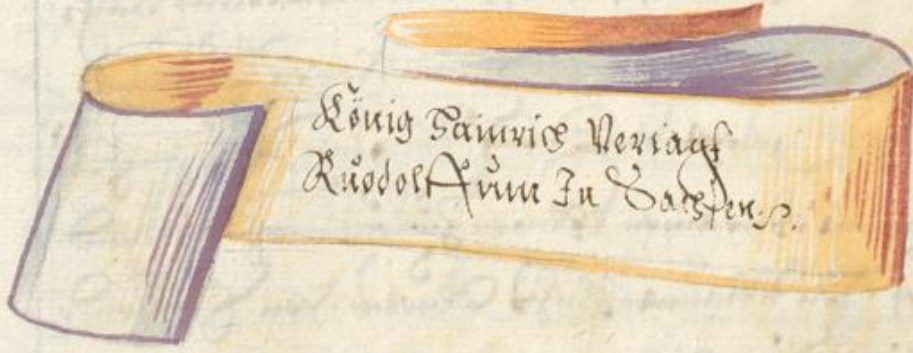 König Hainrich Veriagt
Ruodolffum In Sachsen.